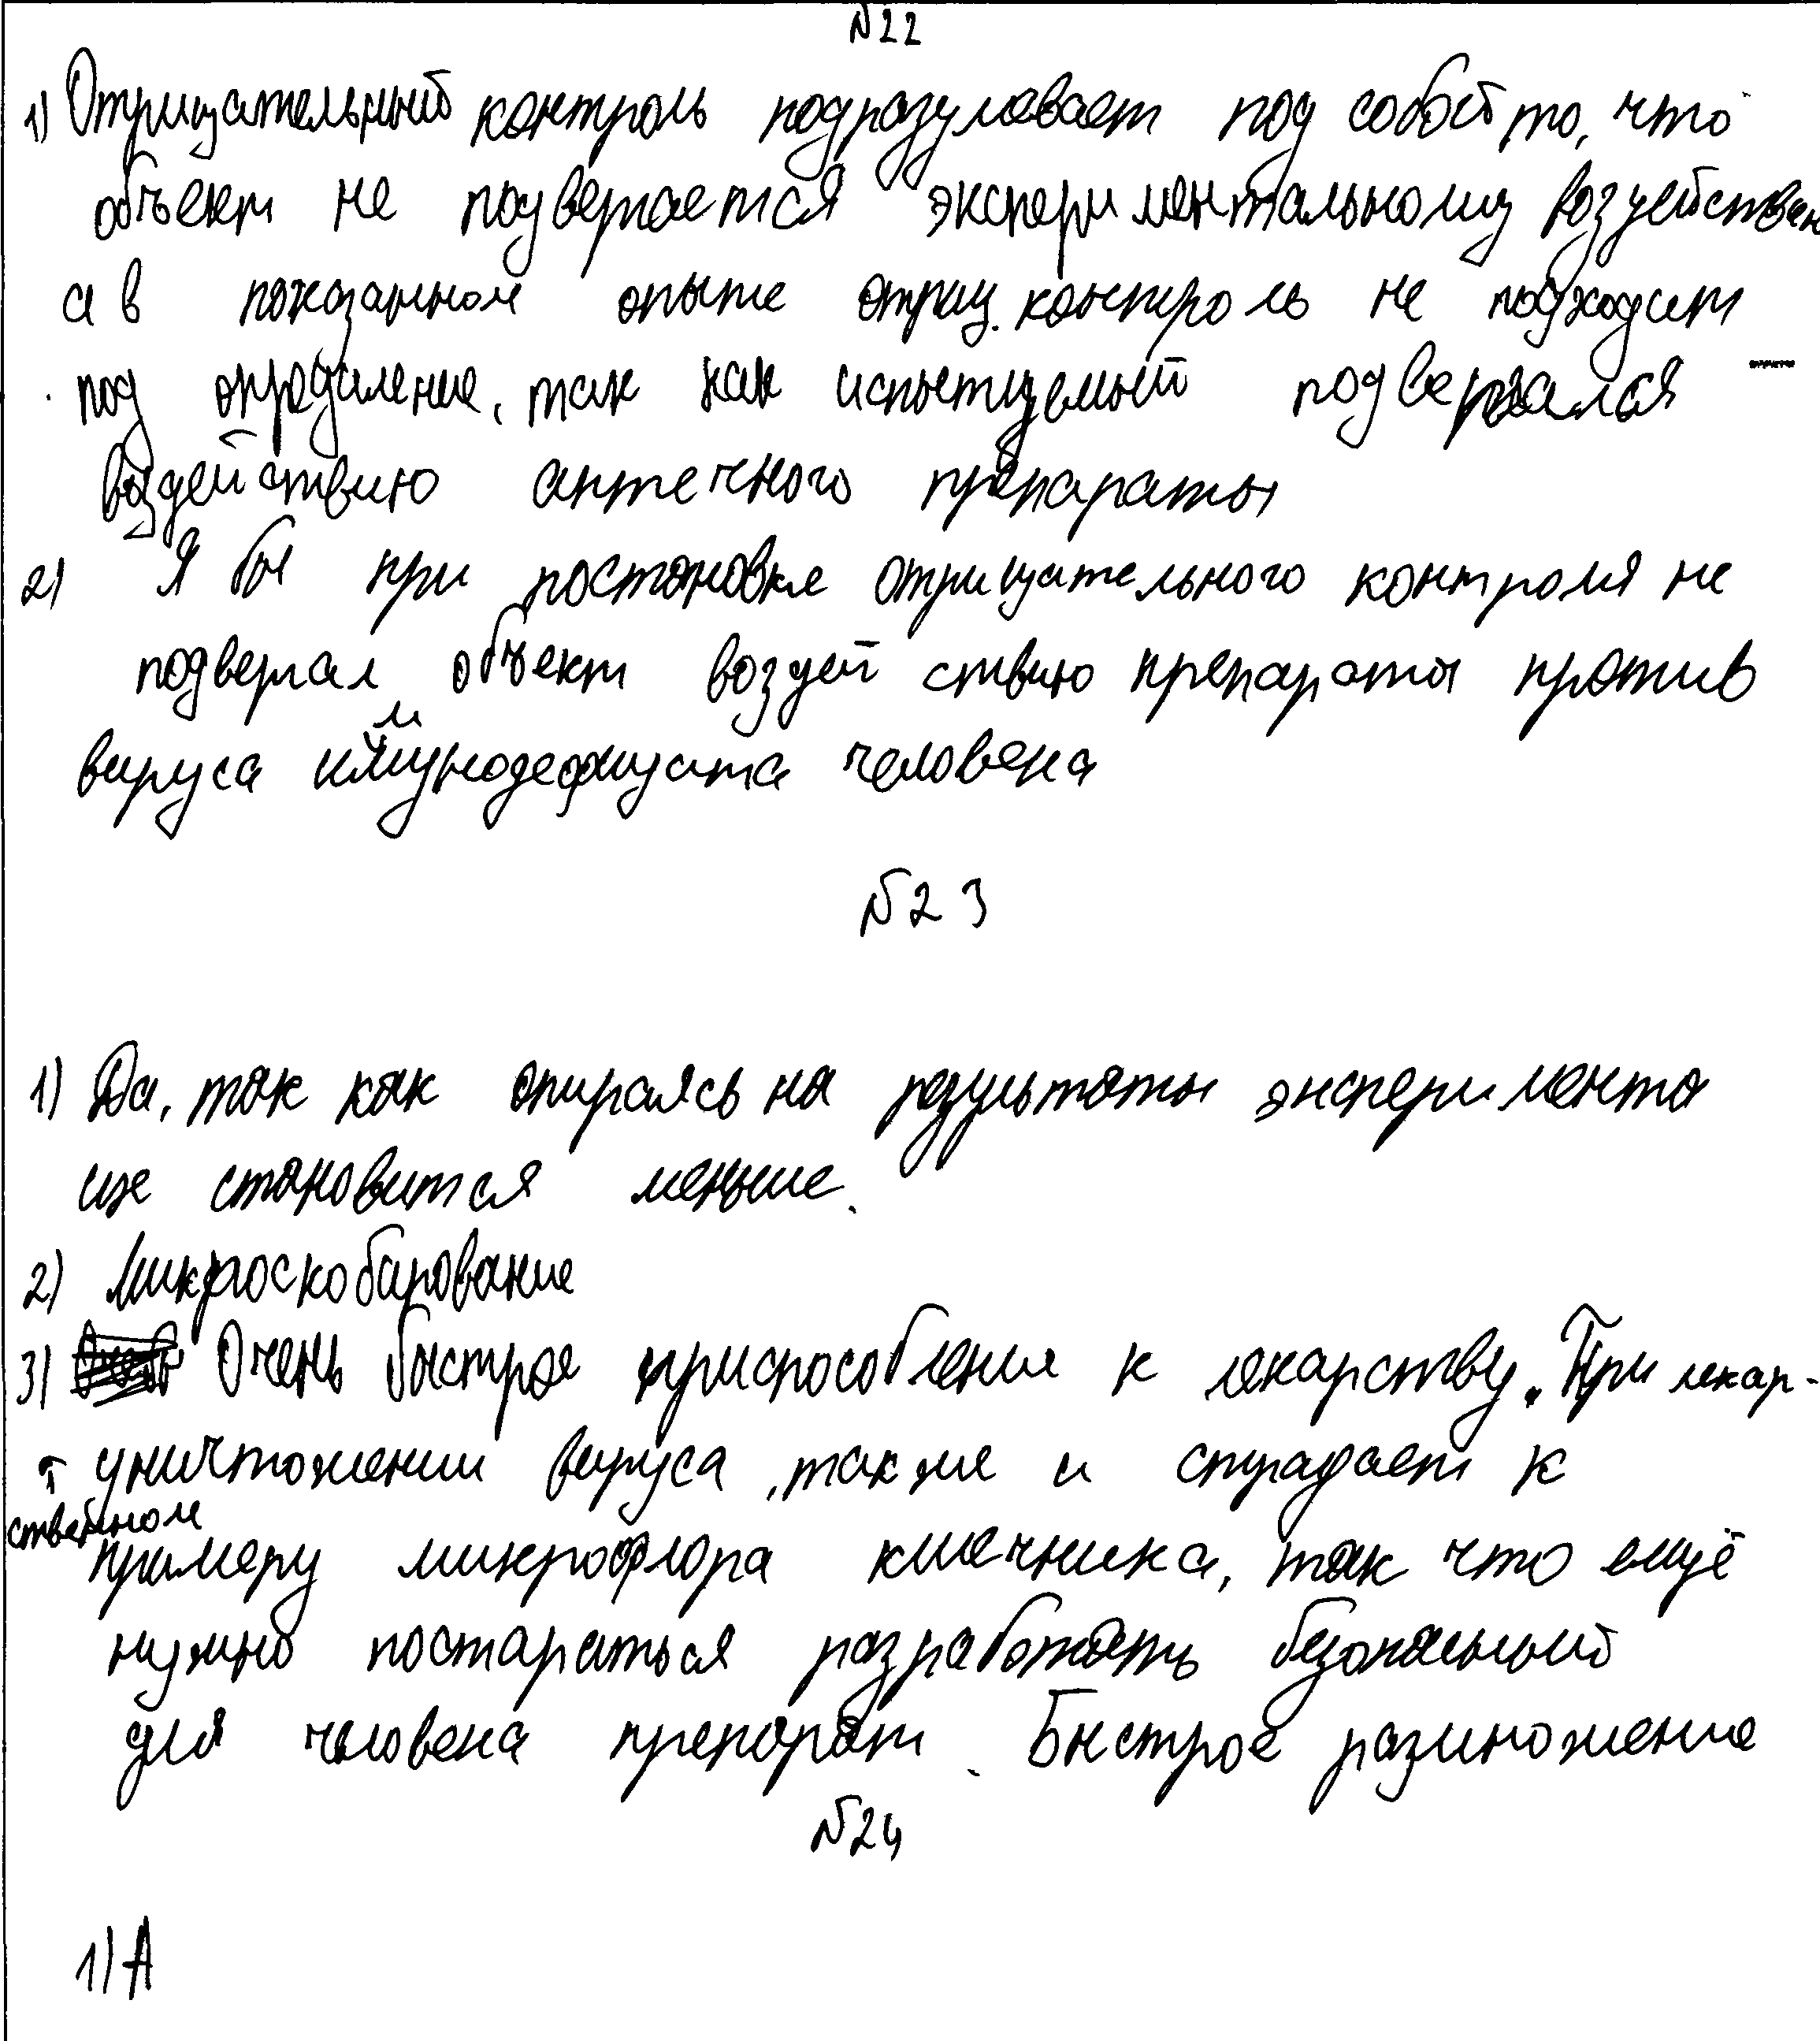 №22
1) Отрицательный контроль подразумевает под собой то, что
объект не подвергается экспериментальному воздействию
а в показанном опыте отриц. контроль не подходит
под определение, так как испытуемый подвергался
воздействию аптечного препараты
2) Я бы при постановке отрицательного контроля не
подвергал объект воздействию препараты против
вируса иммунодефицита человека
№23
1) Да, так как опираясь на результаты эксперимента
их становится меньше.
2) Микроскобирование
3) Очень быстрое приспособление к лекарству. При лекар-
ственном уничтожении вируса, также и страдает к
примеру микрофлора кишечника, так что ещё
нужно постараться разработать безопасный
для человека препарат. Быстрое размножение
№24
1) А